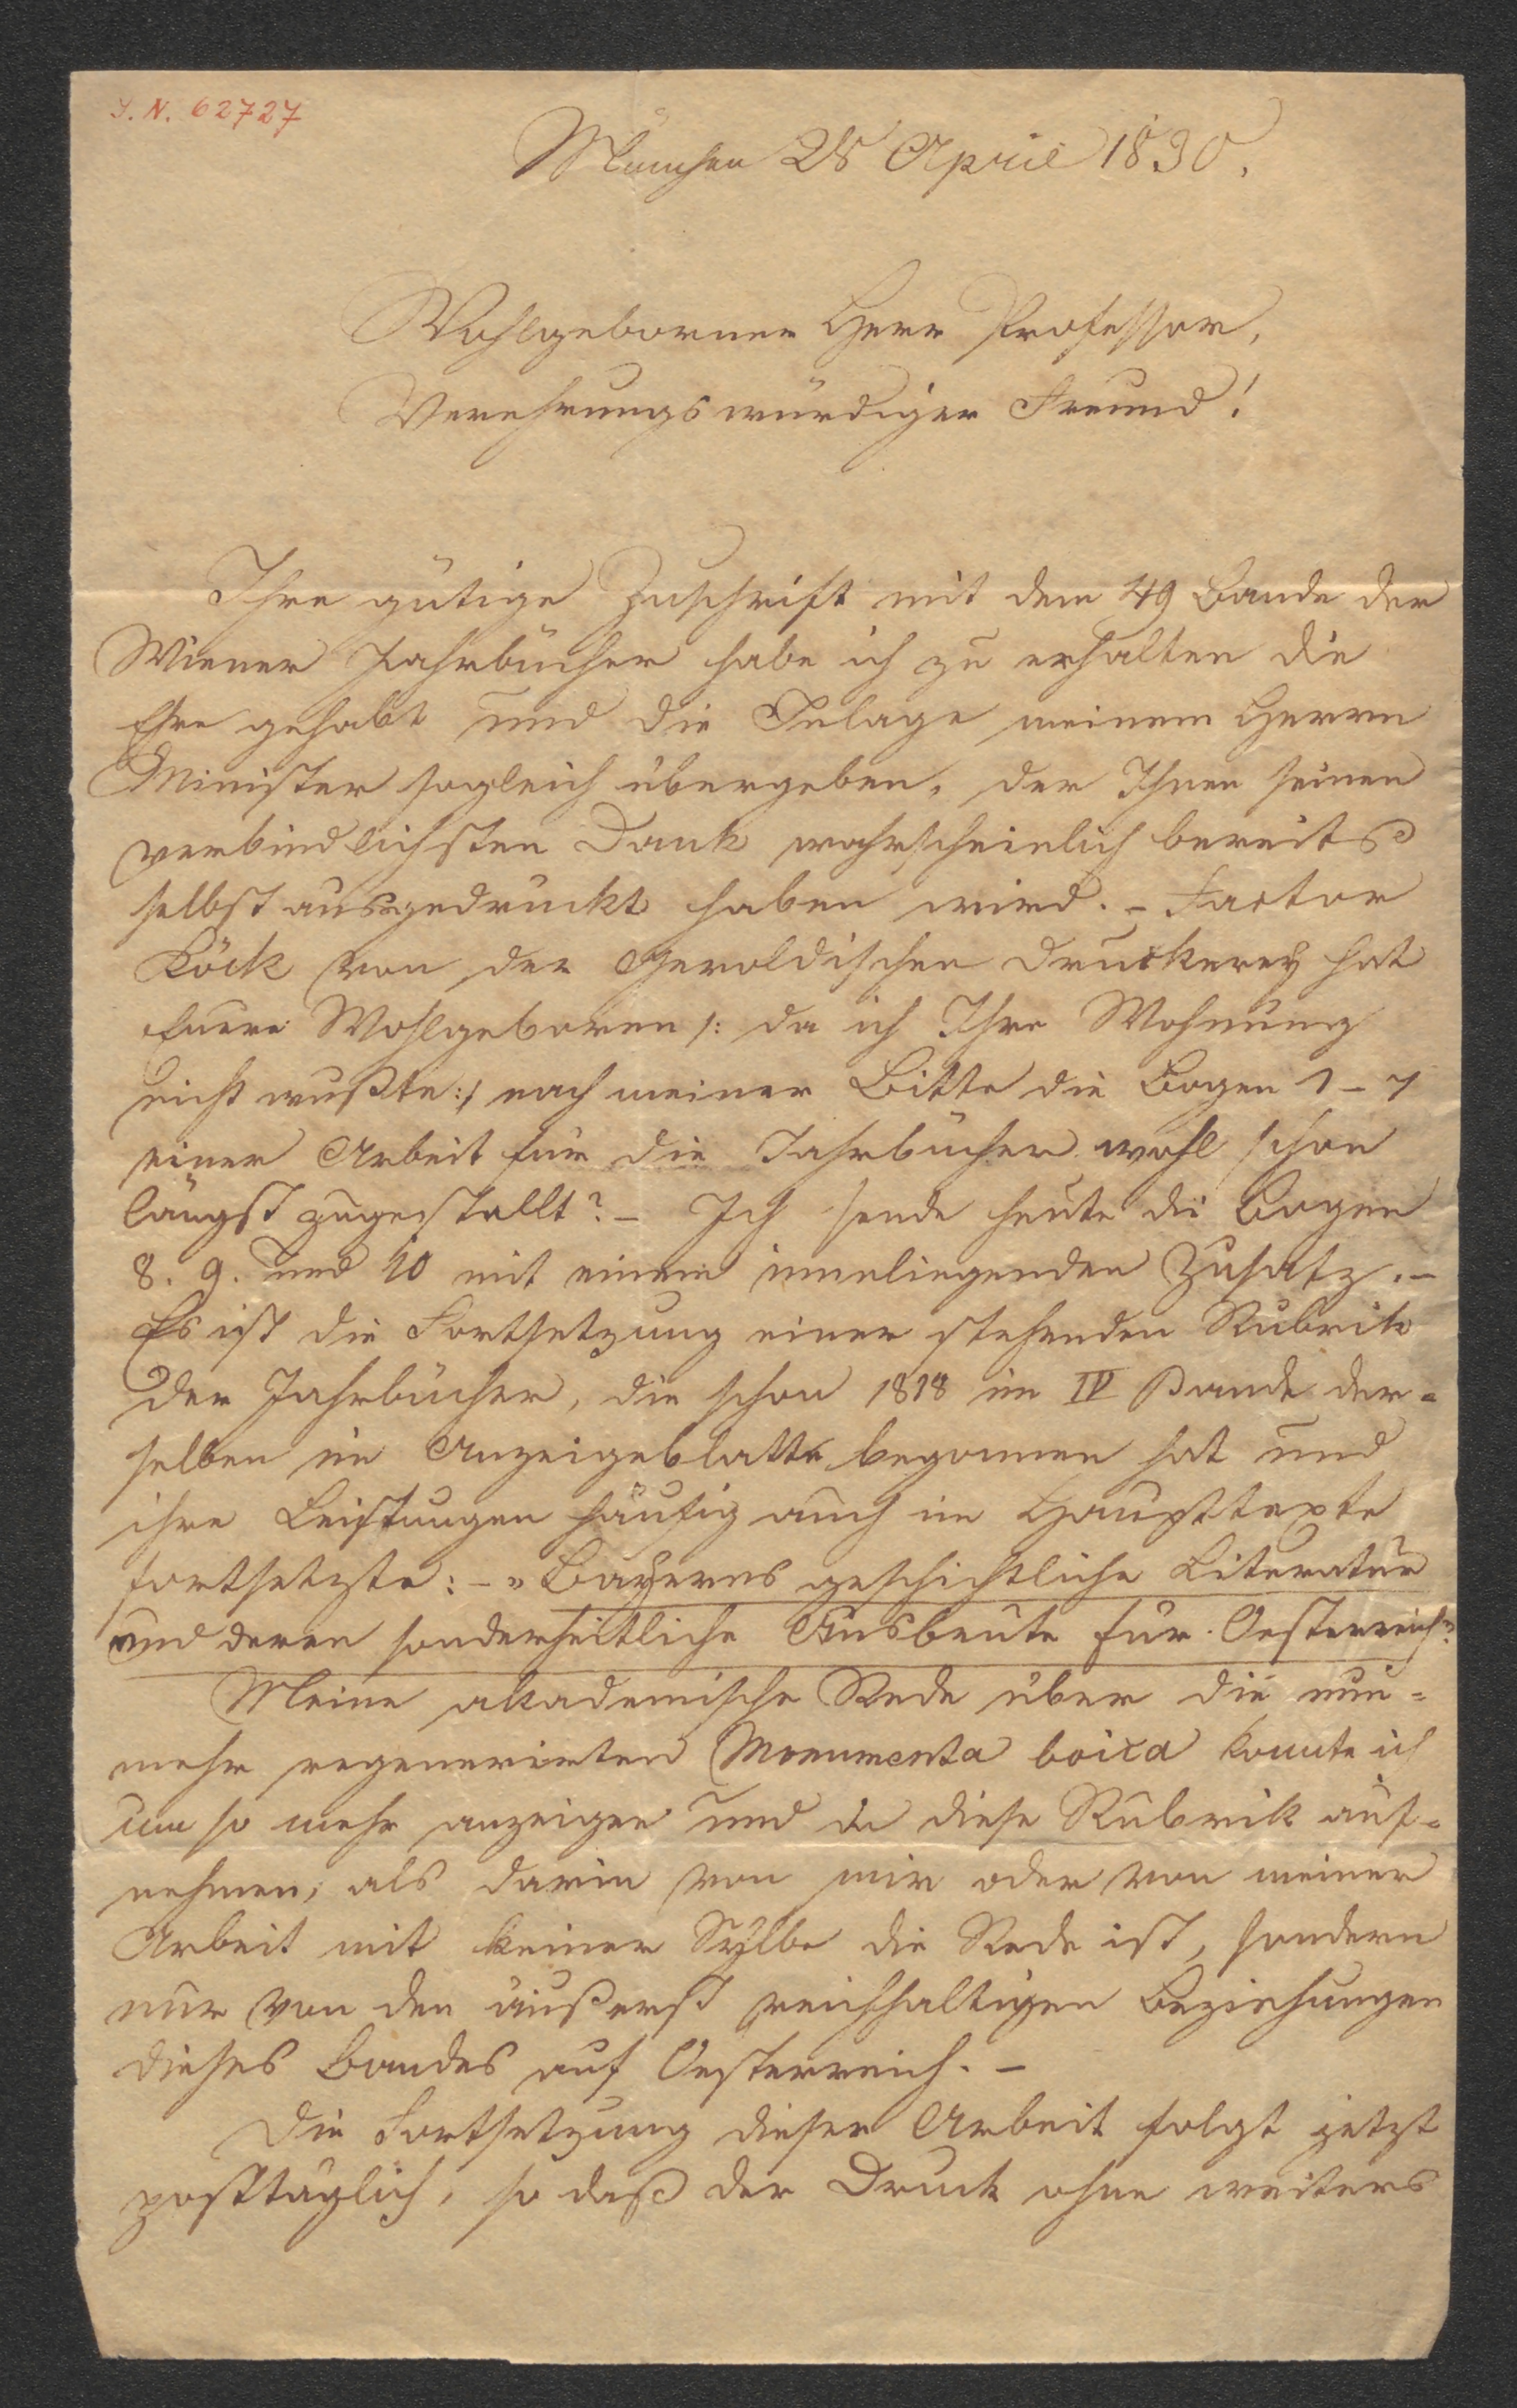 I. N. 62727
München 28 April 1830.
Wohlgeborner Herr Professor,
Verehrungswürdiger Freund!
Ihre gütige Zuschrift mit dem 49 Bande der
Wiener Jahrbücher habe ich zu erhalten die
Ehre gehabt und die Inlage meinem Herrn
Minister sogleich übergeben, der Ihnen seinen
verbindlichsten Dank wahrscheinlich bereits
selbst ausgedruckt haben wird. – Factor
Köck von der Geroldischen Druckerey hat
Euere Wohlgeboren /: da ich Ihre Wohnung
nicht wußte :/ nach meiner Bitte die Bogen 1–7
einer Arbeit für die Jahrbücher wohl schon
längst zugestellt? – Ich sende heute die Bogen
8. 9. und 10 mit einem inneliegenden Zusatz. –
Es ist die Fortsetzung einer stehenden Rubrik
der Jahrbücher, die schon 1818 im IV Bande der=
selben im Anzeigeblatte begonnen hat und
ihre Leistungen häufig auch im Haupttexte
fortsetzte: – „Bayerns geschichtliche Literatur
und deren sonderheitliche Ausbeute für Oesterreich."
Meine akademische Rede über die nun=
mehr regenerirten Monumenta boica konnte ich
um so mehr anzeigen und in diese Rubrik auf=
nehmen, als darin von mir oder von meiner
Arbeit mit keiner Sylbe die Rede ist, sondern
nur von den äußerst reichhaltigen Beziehungen
dieses Bandes auf Oesterreich. –
Die Fortsetzung dieser Arbeit folgt jetzt
posttäglich, so daß der Druck ohne weiters